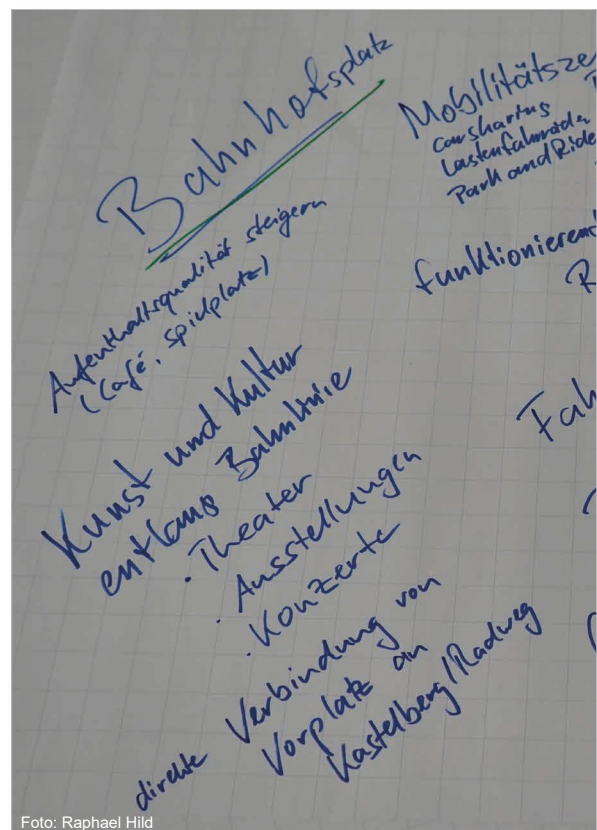 Bahnhofsplatz
Aufenthaltsqualität steigern
(Café, Spielplatz)
Kunst und Kultur
entlang Bahnlinie
· Theater
· Ausstellungen
· Konzerte
direkte Verbindung von
Vorplatz an
Kastelberg/Radweg
Mobilitätsze
carsharing
Lastenfahrräder
Park and Ride
funktionierend
R
Fah
Foto: Raphael Hild